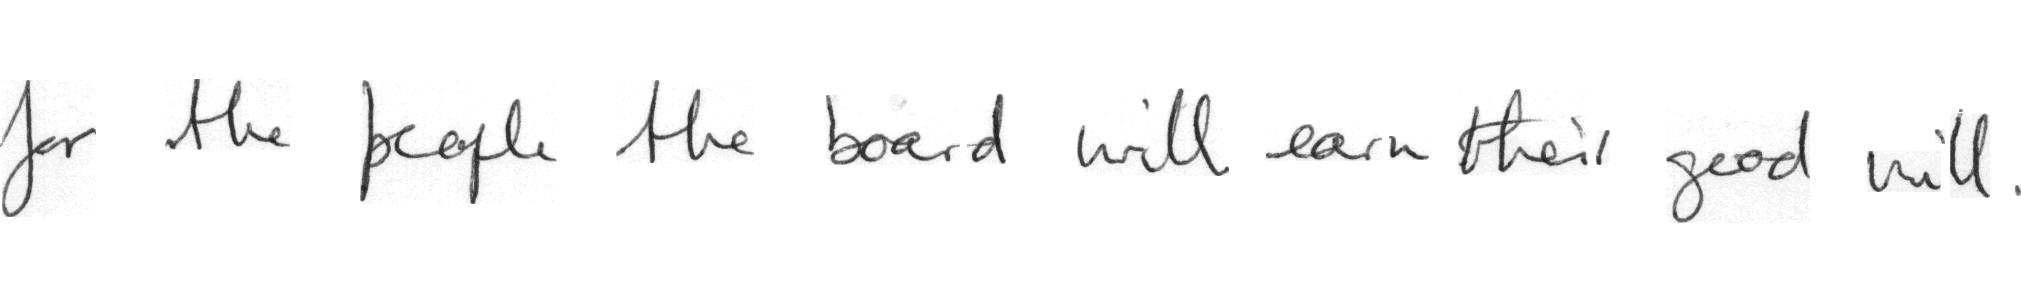 for the people the board will earn their good will.